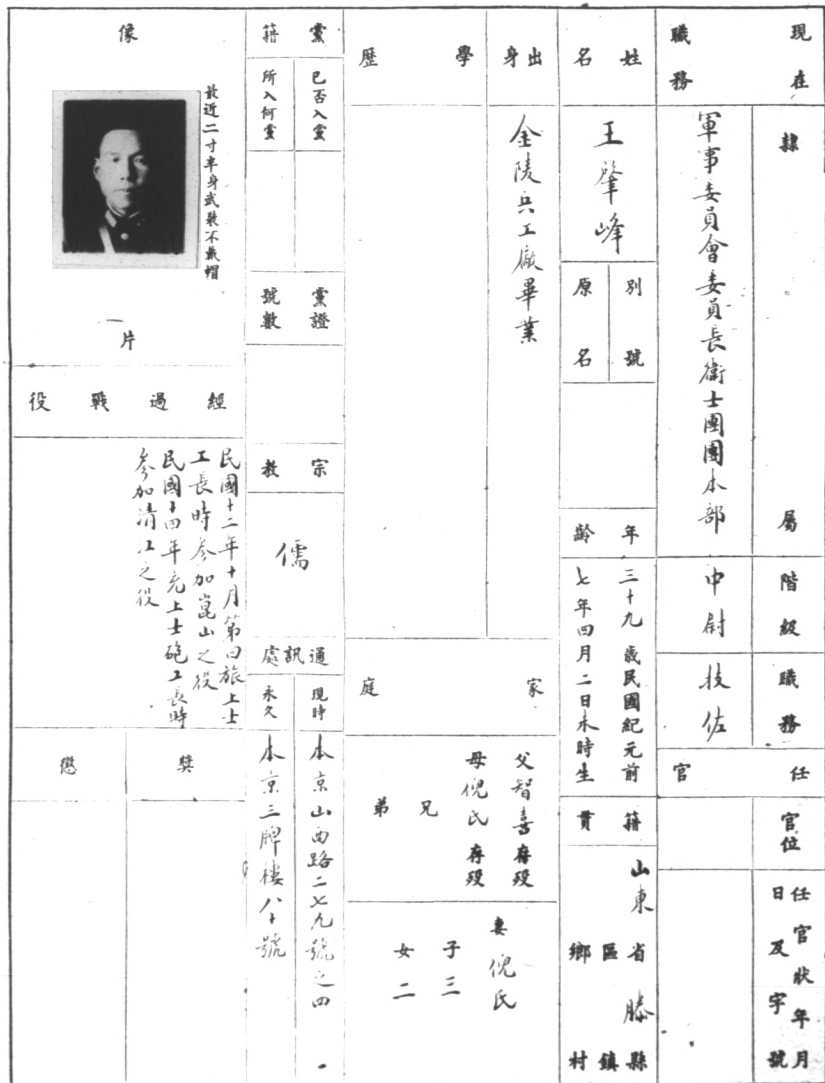 現在職務
隸屬
軍事委員會委員長衛士團團本部
階級
中尉
職務
技佐
任官
官位
任官狀年月日及字號
姓名
王肇峰
別號
原名
年齡
三十九歲民國紀元前
七年四月二日未時生
籍貫
山東省滕縣
區鎮
鄉村
出身
金陵兵工廠畢業
學歷
家庭
父智喜存歿
母倪氏存歿
兄
弟
妻倪氏
子三
女二
黨籍
已否入黨
所入何黨
黨證號數
宗教
儒
通訊處
現時
本京山西路二七九號之四
永久
本京三牌樓八十號
像片
最近二寸半身武裝不戴帽
經過戰役
民國十二年十月第四旅上士
工長時參加崑山之役
民國十四年充上士砲工長時
參加清江之役
獎
懲